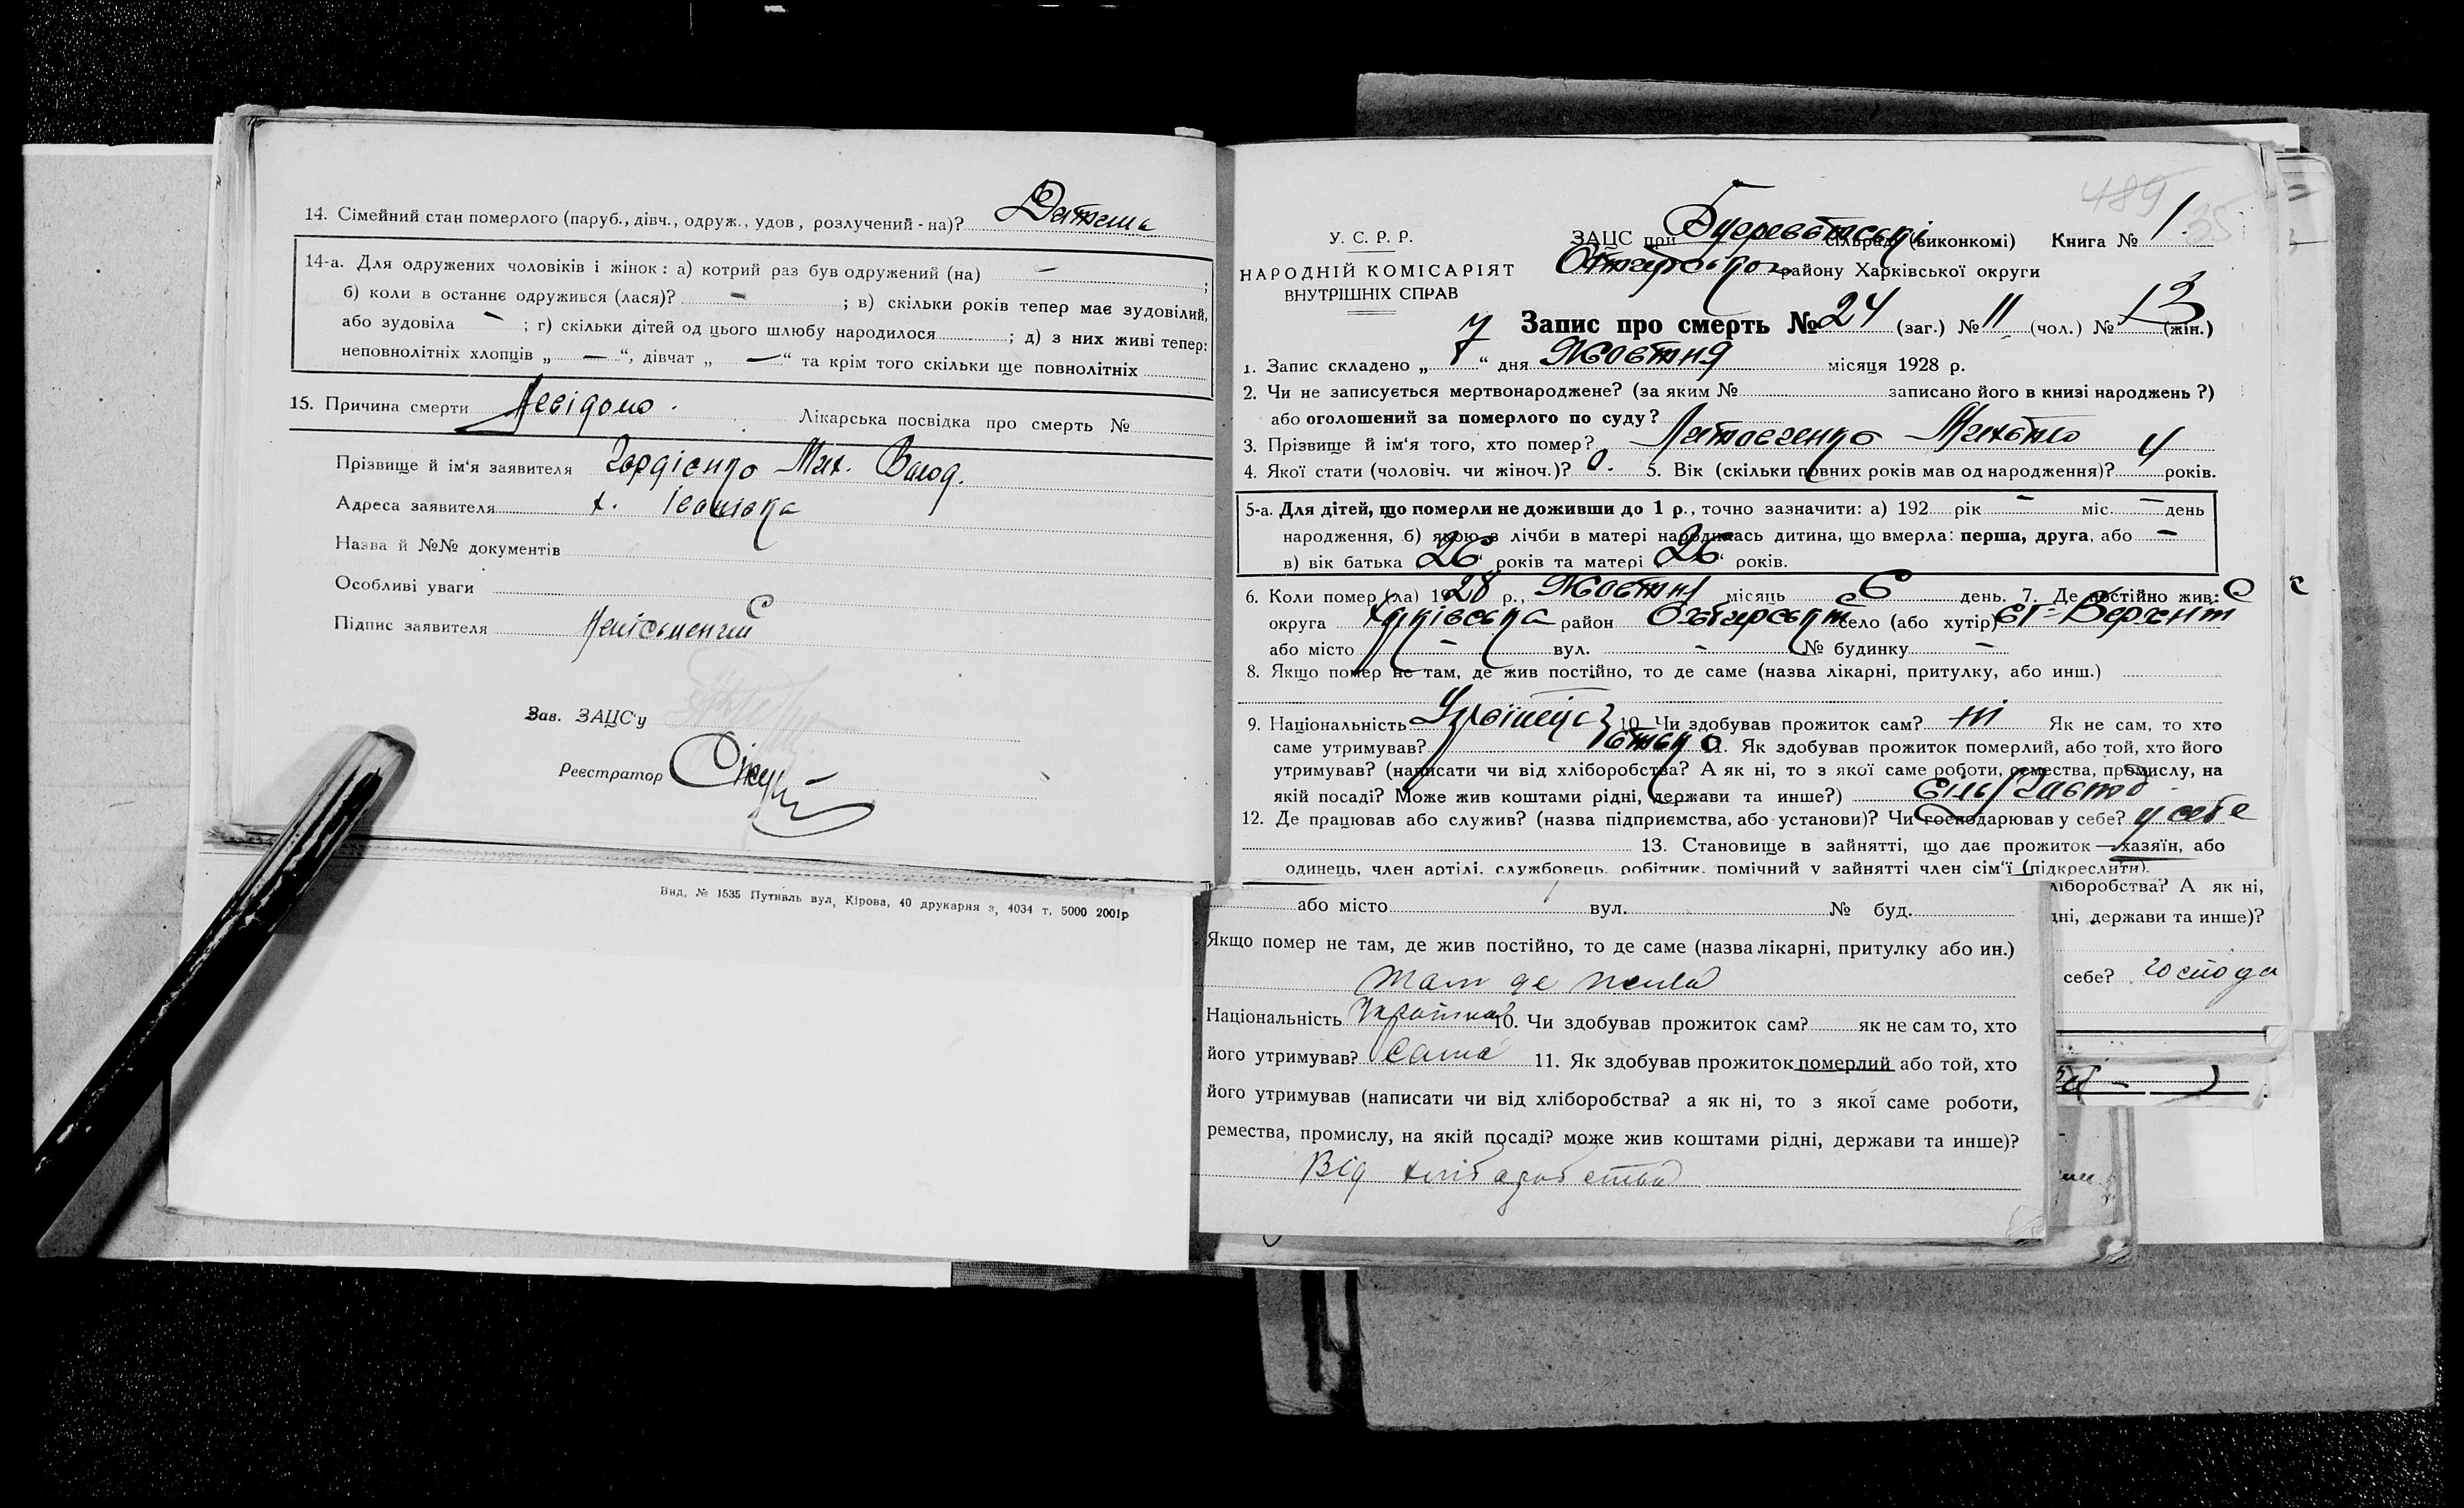 14. Сімейний стан померлого (паруб., дівч., одруж., удов, розлучений-на)? Дитина
14-а. Для одружених чоловіків і жінок: а) котрий раз був одружений (на) — ;
б) коли в останнє одружився (лася)? — ; в) скільки років тепер має зудовілий,
або зудовіла — ; г) скільки дітей од цього шлюбу народилося ; д) з них живі тепер:
неповнолітніх хлопців „ — “, дівчат „ — “ та крім того скільки ще повнолітніх
15. Причина смерти Невідомо. Лікарська посвідка про смерть №
Прізвище й ім‘я заявителя Гордієнко Мих. Волод.
Адреса заявителя х. Іванівка
Назва й №№ документів
Особливі уваги
Підпис заявителя Неписьменний
Зав. ЗАЦС'у
Реєстратор
Вид. № 1535 Путивль вул, Кірова, 40 друкарня з, 4034 т, 5000 2001р
489
35
У. С. Р. Р.
НАРОДНІЙ КОМІСАРІЯТ
ВНУТРІШНІХ СПРАВ
ЗАЦС при сільраді (виконкомі) Книга № 1.
району Харківської округи
Запис про смерть № 24 (заг.) № 11 (чол.) № 13 (жін.)
1. Запис складено „ 7 “ дня Жовтня місяця 1928 р.
2. Чи не записується мертвонароджене? (за яким № записано його в книзі народжень ?)
або оголошений за померлого по суду?
3. Прізвище й ім‘я того, хто помер?
4. Якої стати (чоловіч. чи жіноч.)? 5. Вік (скільки повних років мав од народження)? 4 років.
5-а. Для дітей, що померли не доживши до 1 р., точно зазначити: а) 192 рік — міс. — день
народження, б) якою з лічби в матері народилась дитина, що вмерла: перша, друга, або —
в) вік батька „ 26 “ років та матері „ 26 “ років.
6. Коли помер (ла) 1928 р., Жовтня місяць 6 день. 7. Де постійно жив:
округа Харківська район село (або хутір)
або місто — вул. — № будинку —
8. Якщо помер не там, де жив постійно, то де саме (назва лікарні, притулку, або инш.)
9. Національність 10. Чи здобував прожиток сам? ні Як не сам, то хто
саме утримував? батько 11. Як здобував прожиток померлий, або той, хто його
утримував? (написати чи від хліборобства? А як ні, то з якої саме роботи, ремества, промислу, на
якій посаді? Може жив коштами рідні, держави та инше?)
12. Де працював або служив? (назва підприємства, або установи)? Чи господарював у себе? у себе
13. Становище в зайнятті, що дає прожиток — хазяїн, або
одинець, член артілі, службовець, робітник, помічний у зайнятті член сім‘ї (підкреслити).
або місто вул. № буд.
Якщо помер не там, де жив постійно, то де саме (назва лікарні, притулку або ин.)
там де жила
Національність Українка 10. Чи здобував прожиток сам? як не сам то, хто
його утримував? сама 11. Як здобував прожиток померлий або той, хто
його утримував (написати чи від хліборобства? а як ні, то з якої саме роботи,
ремества, промислу, на якій посаді? може жив коштами рідні, держави та инше)?
Від хліборобства
ліборобства? А як ні,
дні, держави та инше)?
себе? господа